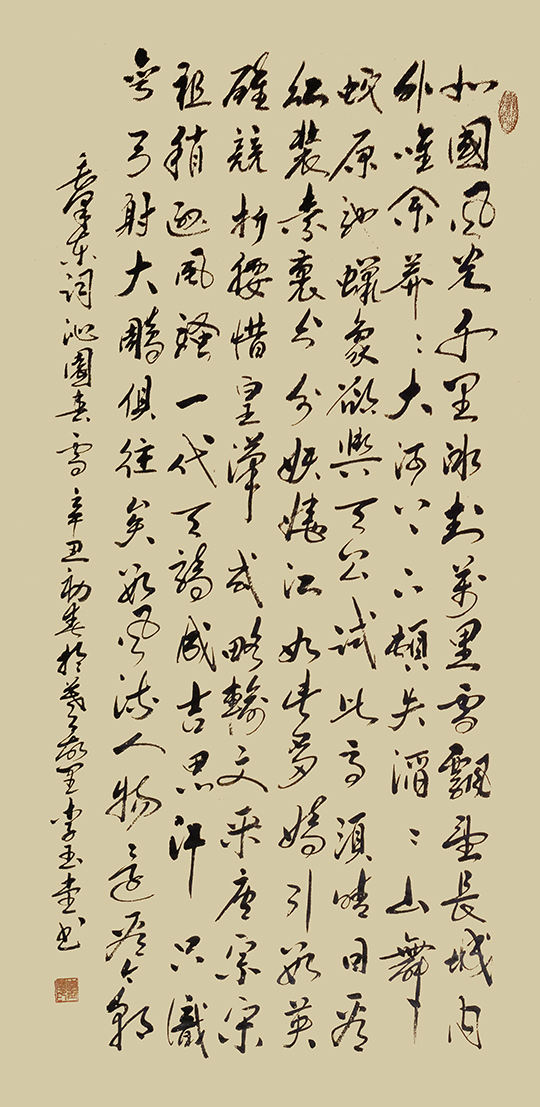 北國風光千里冰封萬里雪飄望長城內
外唯余莽〻大河上下頓失滔〻山舞
蛇原馳蠟象欲與天公試比高須晴日看
紅裝素裹分外妖嬈江如此多嬌引數英
雄競折腰惜皇漢武略輸文采唐宗宋
祖稍遜風騷一代天驕成吉思汗只識
彎弓射大鵰俱往矣數風流人物還看今朝
毛澤東詞沁園春雪辛丑初春於羲之故里李玉堂書